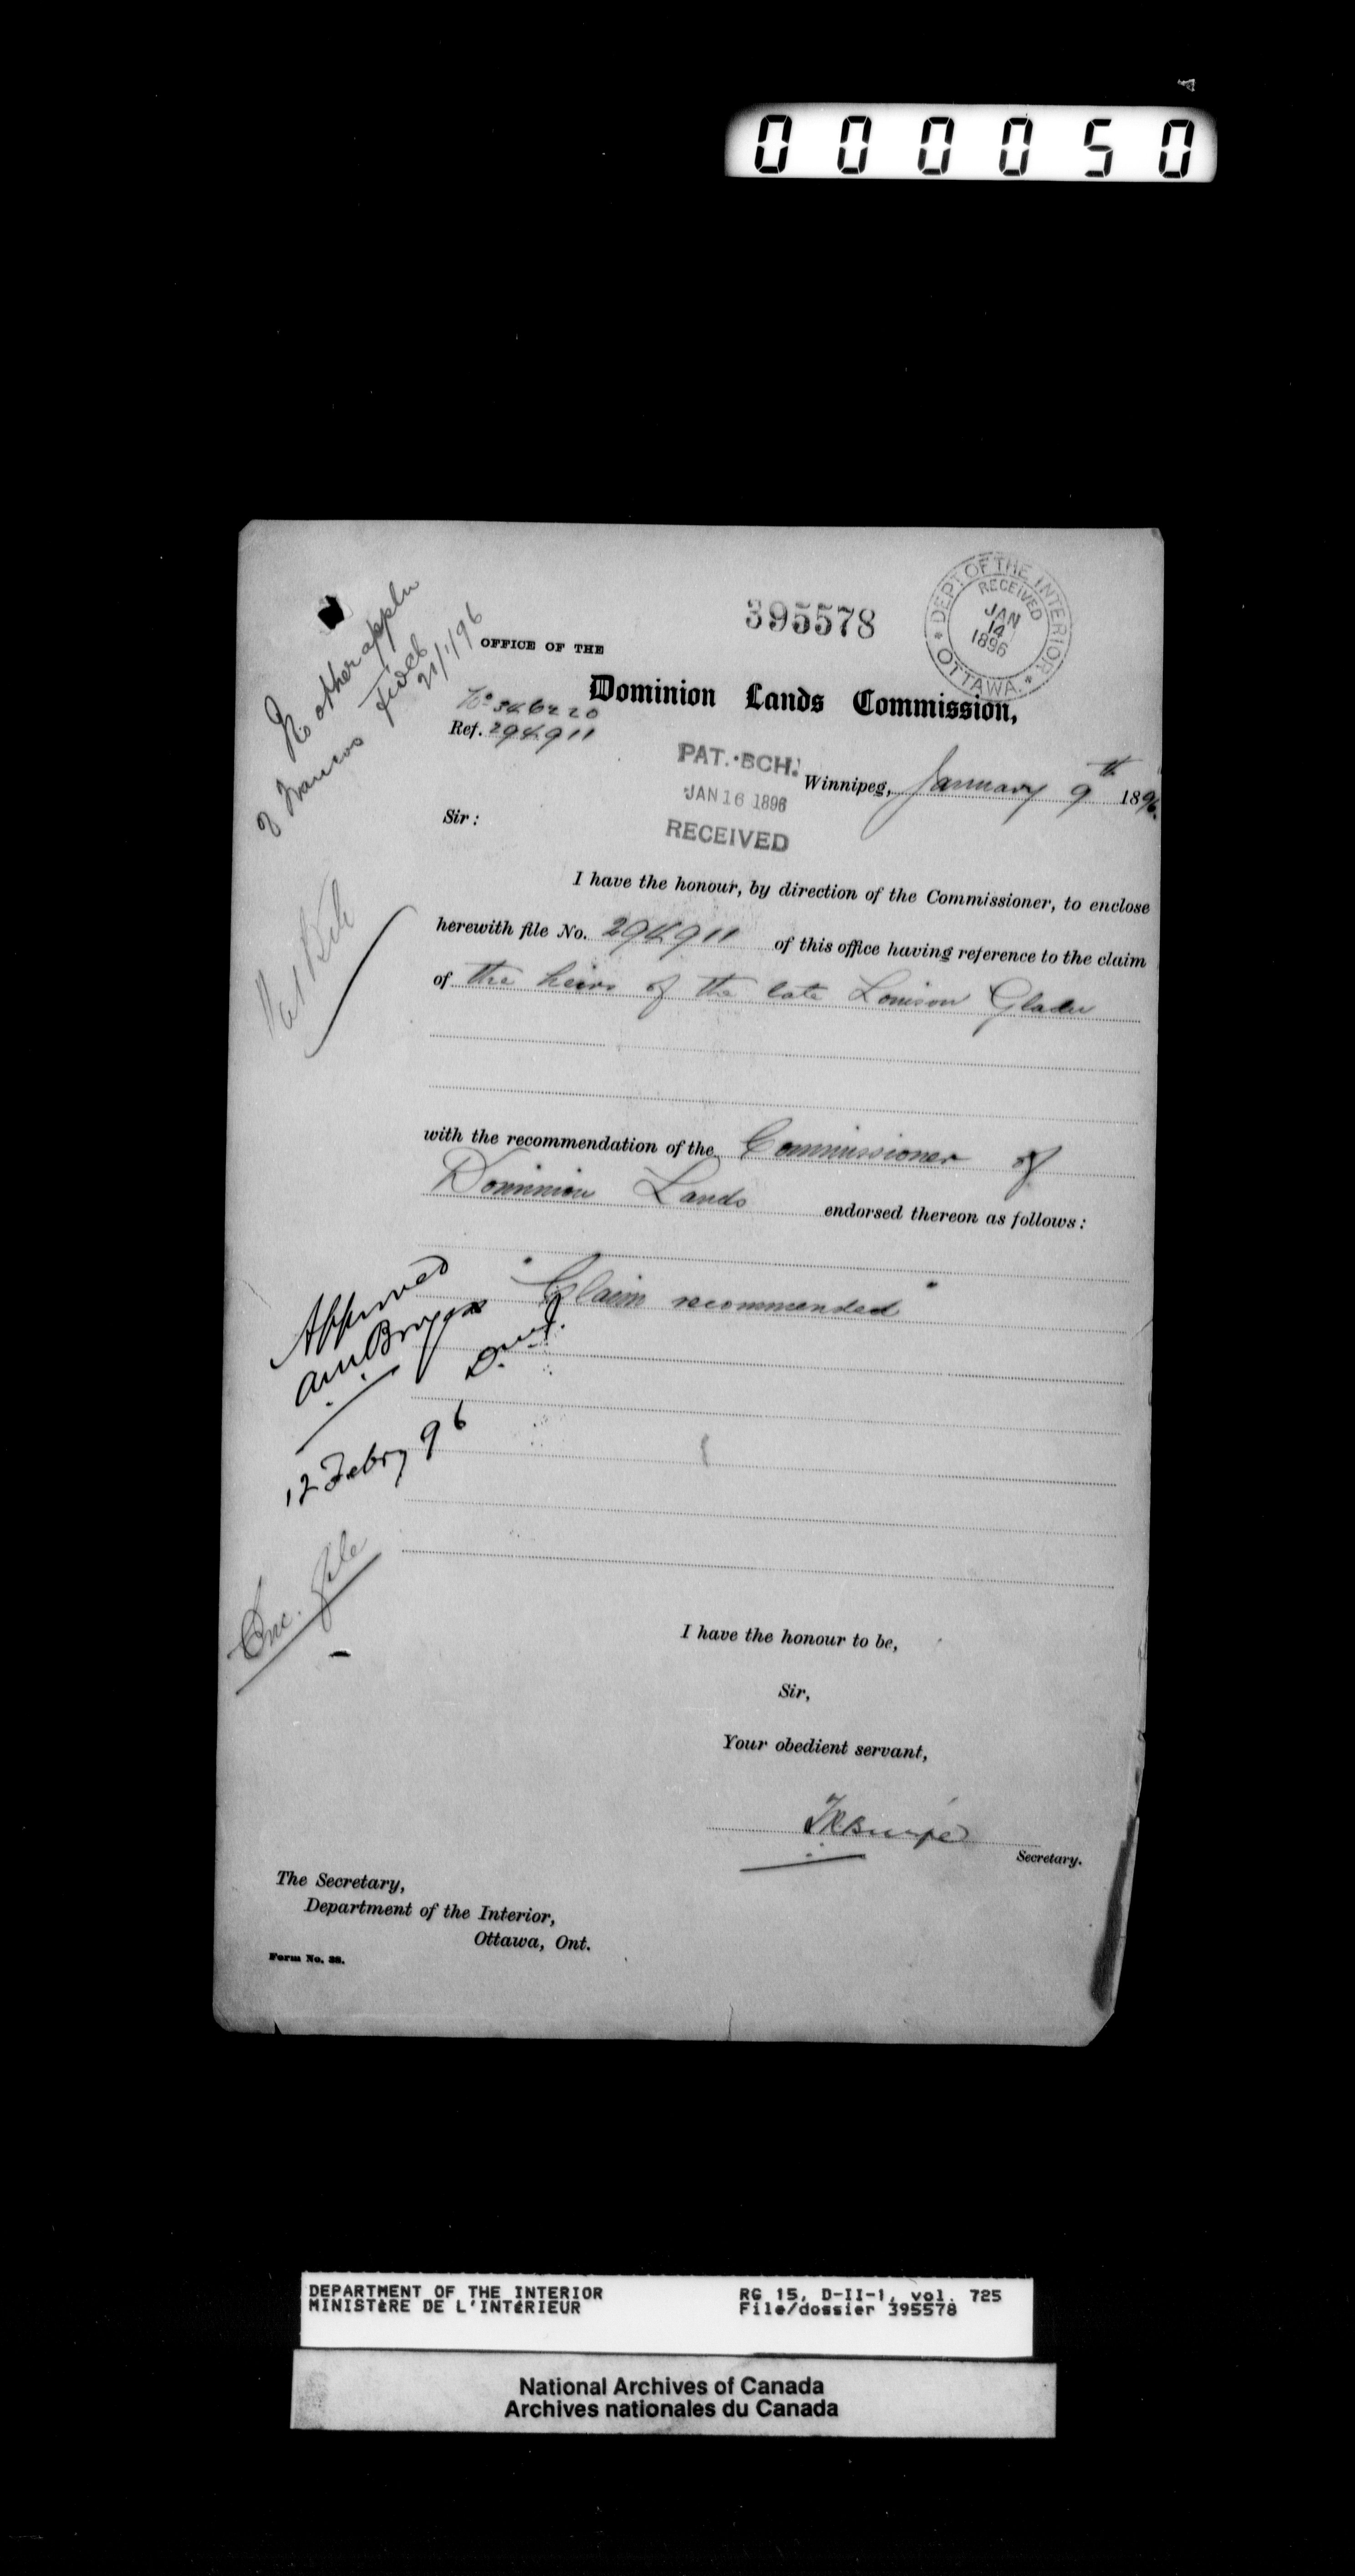 000050
395578
DEPT. OF THE INTERIOR
RECEIVED
JAN
14
1896
OTTAWA.
No other appln
21/1/96
OFFICE OF THE
Dominion Lands Commission,
No 346220
Ref. 294911
PAT. BCH.
JAN 16 1896
RECEIVED
Winnipeg, January 9th 1896.
Sir:
I have the honour, by direction of the Commissioner, to enclose
herewith file No. 294911 of this office having reference to the claim
of the heirs of the late Louison Gladu
with the recommendation of the Commissioner of
Dominion Lands endorsed thereon as follows:
"Claim recommended"
Approved
AMBurgess
12 Febry 96
Enc. file
I have the honour to be,
Sir,
Your obedient servant,
Secretary.
The Secretary,
Department of the Interior,
Ottawa, Ont.
Form No. 38.
DEPARTMENT OF THE INTERIOR
MINISTÈRE DE L'INTÉRIEUR
RG 15, D-II-1, vol. 725
File/dossier 395578
National Archives of Canada
Archives nationales du Canada